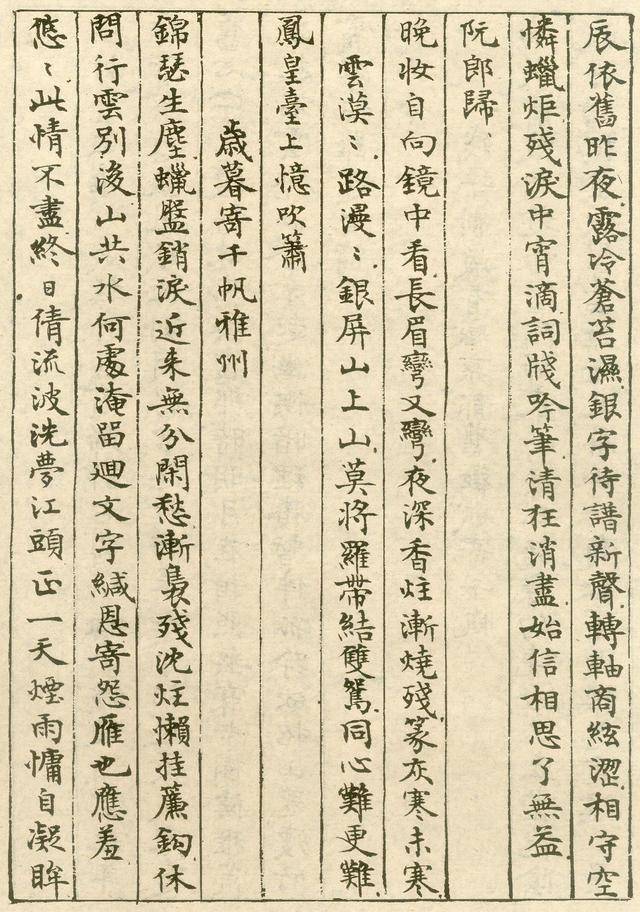 辰依舊昨夜露冷蒼苔濕銀字待譜新聲轉軸商絃澀相守空
憐蠟炬殘淚中宵滴詞牋吟筆清狂消盡始信相思了無益
阮郎歸
晚妝自向鏡中看長眉彎又彎夜深香炷漸燒殘篆灰寒未寒
雲漠〻路漫〻銀屏山上山莫將羅帶結雙鴛同心難更難
鳳皇臺上憶吹簫
歲暮寄千帆雅州
錦瑟生塵蠟盤銷淚近来無分閑愁漸裊殘沈炷懶挂簾鉤休
問行雲別後山共水何處淹留廻文字緘恩寄怨雁也應羞
悠〻此情不盡終日倩流波洗夢江頭正一天煙雨慵自凝眸